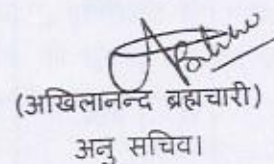 (अखिलानन्द ब्रह्मचारी)
अनु सचिव।